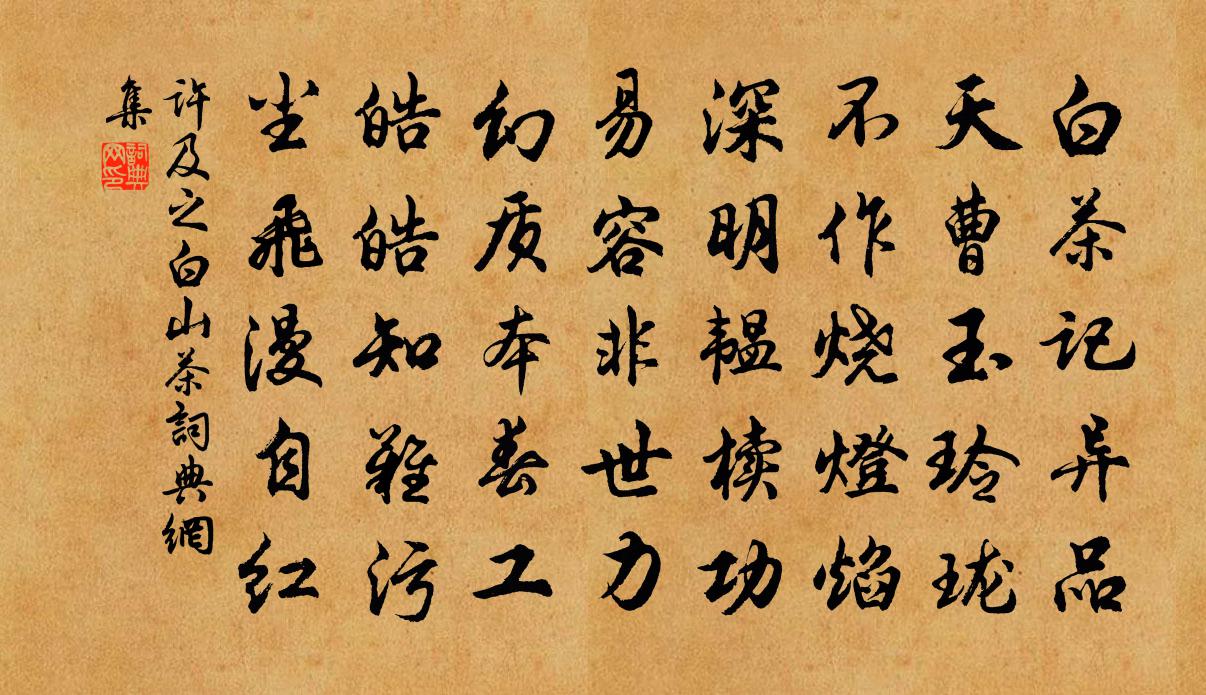 白茶记异品
天曹玉玲珑
不作烧燈焰
深明韫椟功
易容非世力
幻质本春工
皓皓知难污
尘飛漫自红
许及之白山茶詞典網
集
詞典
网印